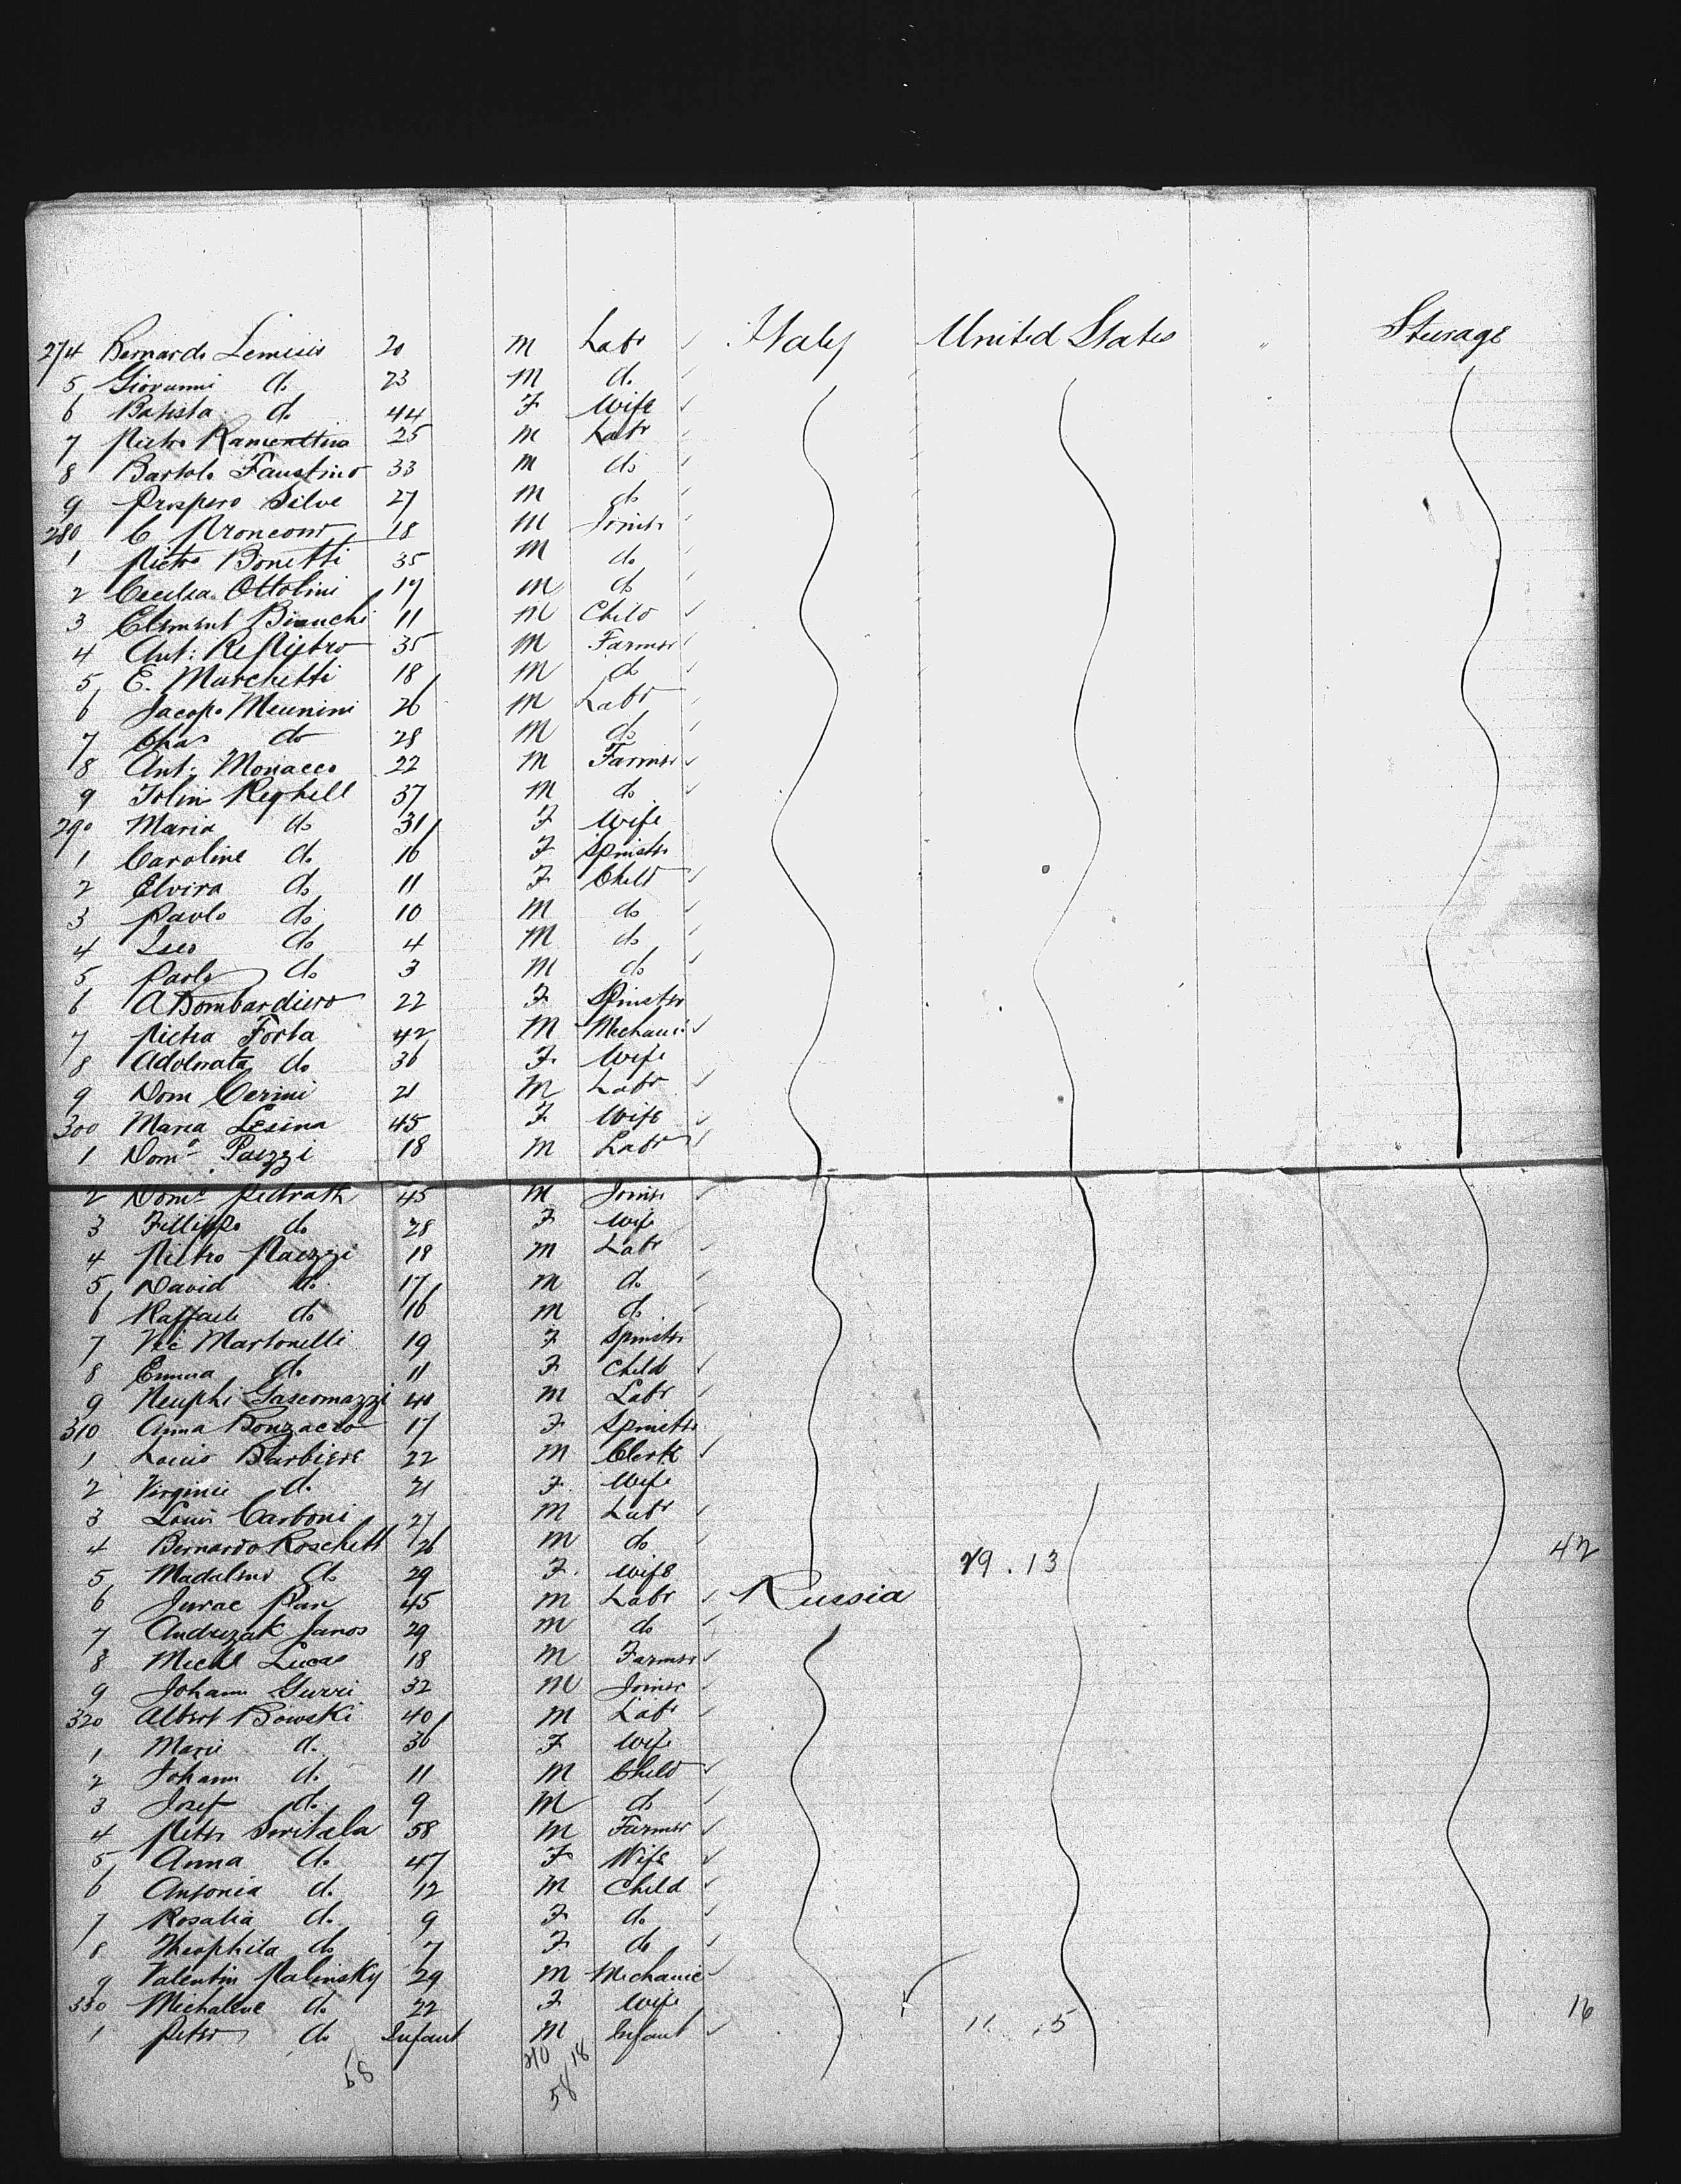 274 Bernardo Lemisis 20 M Labr ✓ Italy United States " Steerage
5 Giovanni do 23 M do
6 Batista do 44 F Wife ✓
7 Pietro 25 M Labr
8 Bartolo Faustino 33 M do
9 Prospero Silve 27 M do
280 C Pronconi 18 M Joiner
1 Pietro Bonetti 35 M do
2 Cecilia Ottolini 19 M do
3 Clement Bianchi 11 M Child ✓
4 Ant: Re Pietro 35 M Farmer
5 E. Marchetti 18 M do
6 Jacopo Meunini 26 M Labr
7 Chas do 28 M do
8 Ant: Monacco 22 M Farmer ✓
9 Tolin Reghell 37 M do ✓
290 Maria do 31 F Wife
1 Caroline do 16 F Spinster
2 Elvira do 11 F Child ✓
3 Pavlo do 10 M do ✓
4 do 4 M do ✓
5 Paolo do 3 M do ✓
6 A Bombardiero 22 F Spinster
7 Pietra Forta 42 M Mechanic ✓
8 Adolnata do 36 F Wife
9 Dom Cerini 21 M Labr ✓
300 Maria Lesina 45 F Wife ✓
1 Domo Paezzi 18 M Labr ✓
2 Domc Pietrath 45 M Joiner ✓
3 Fillippo do 28 F Wife
4 Pietro Paezzi 18 M Labr ✓
5 David do 17 M do ✓
6 Raffaele do 16 M do ✓
7 Vic Martonelli 19 F Spinster
8 Emma do 11 F Child ✓
9 Neuphi Gascomazzi 40 M Labr ✓
310 Anna Bonzacco 17 F Spinster
1 Louis Barbiere 22 M Clerk ✓
2 Virginie do 21 F Wife
3 Louis Carboni 27 M Labr ✓
4 Bernardo Roschett 26 M do ✓
5 Madaline do 29 F Wife 29.13 42
6 Jurac Pan 45 M Labr ✓ Russia
7 Andrezak Janos 29 M do ✓
8 Michl Lucas 18 M Farmer ✓
9 Johann Gurri 32 M Joiner ✓
320 Albert Bowski 40 M Labr ✓
1 Marie do 36 F Wife
2 Johann do 11 M Child ✓
3 Josef do 9 M do ✓
4 Peter Soritala 58 M Farmer ✓
5 Anna do 47 F Wife ✓
6 Antonia do 12 M Child ✓
7 Rosalia do 9 F do ✓
8 Theophila do 7 F do ✓
9 Valentin Palinsky 29 M Mechanic ✓
330 Michalene do 22 F Wife
1 Peter do Infant M Infant ✓ 11 . 5 16
58 40 18
58